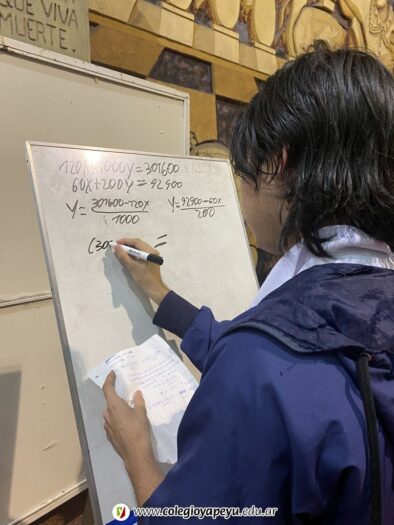 QUE VIVA
MUERTE.
120X+1000Y=307600
60X+200Y=92900
Y=307600-120X/1000 Y=92900-60X/200
(30 =
www.colegioyapeyu.edu.ar